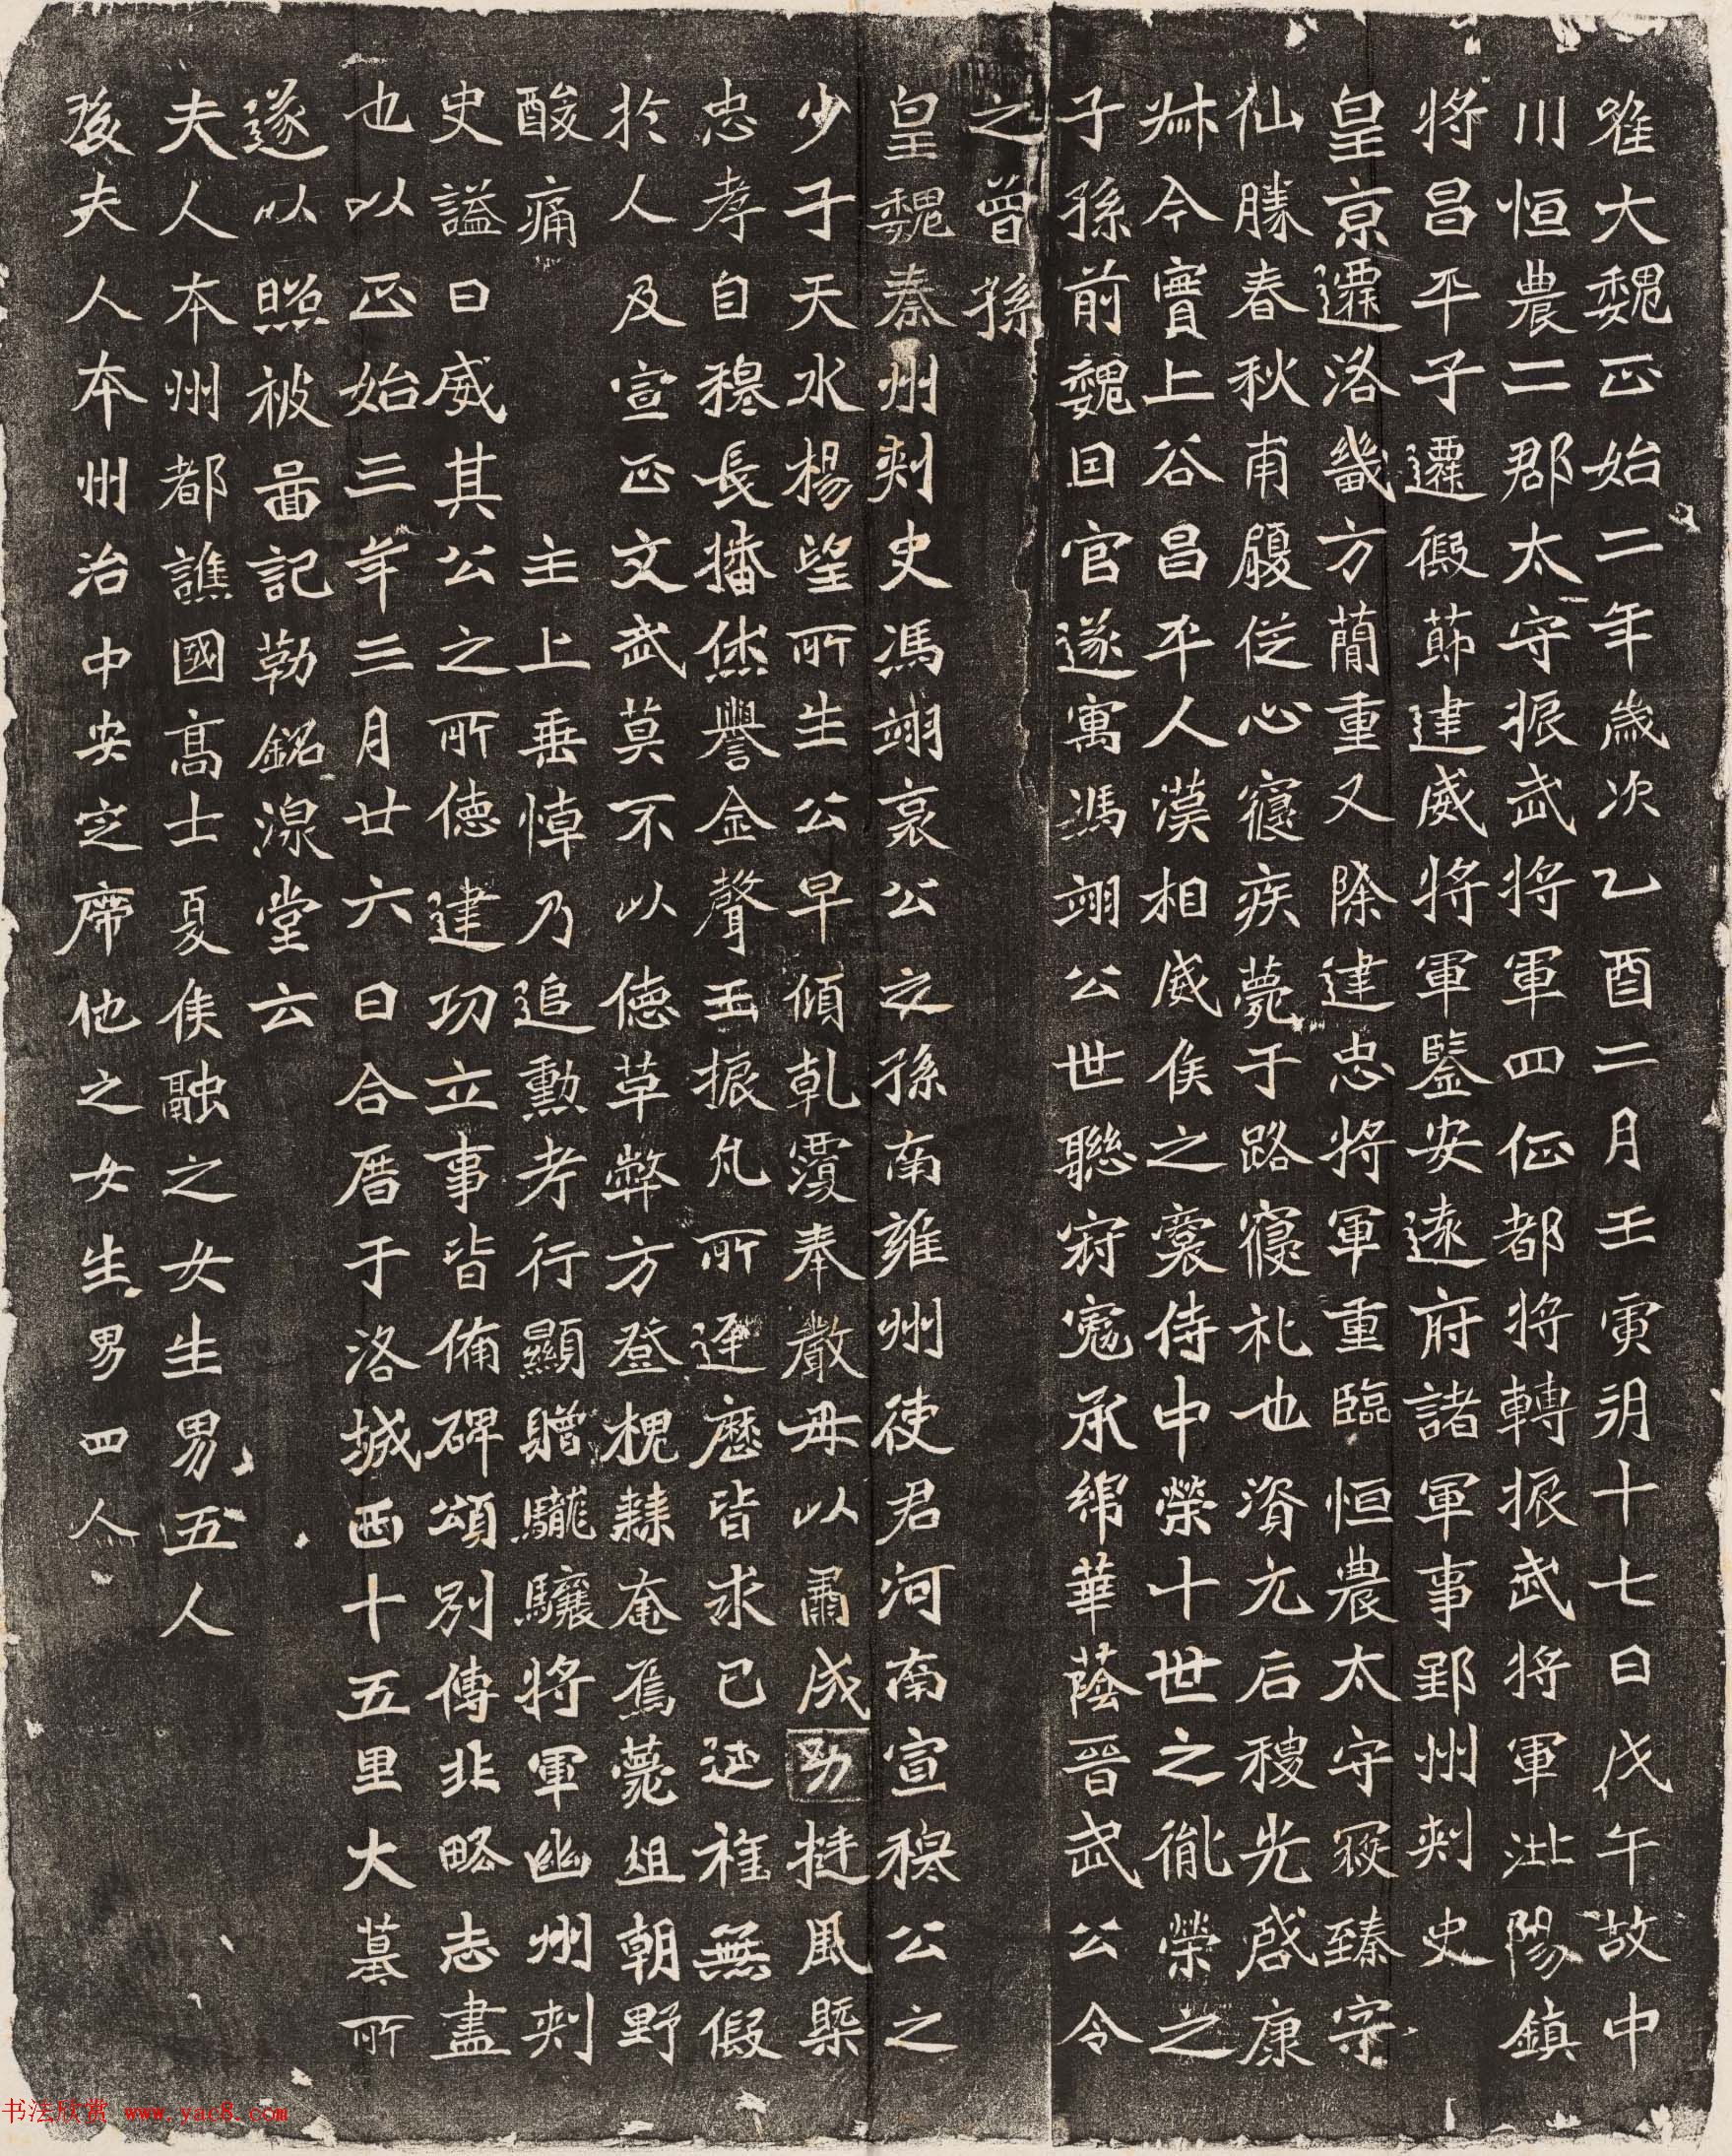 唯大魏正始二年歲次乙酉二月壬寅朔十七日戊午故中
川恒農二郡太守振武將軍四征都將轉振武將軍沘陽鎮
將昌平子遷假節建威將軍鑒安遠府諸軍事郢州刺史
皇京遷洛畿方蕳重又除建忠將軍重臨恒農太守寂臻守
仙勝春秋甫履從心寢疾薨于路寢礼也資元后稷光啓康
叔今實上谷昌平人漢相威侯之裔侍中榮十世之胤榮之
子孫前魏因官遂寓馮翊公世聯冠冕承綿華蔭晉武公令
之曾孫
皇魏秦州刺史馮翊哀公之孫南雍州使君河南宣穆公之
少子天水楊望所生公早傾乾覆奉嚴母以肅成幼挺風槩
忠孝自穆長播休譽金聲玉振凡所逕歷皆求已延䄠無假
於人及宣正文武莫不以德草弊方登槐棘奄焉薨徂朝野
酸痛主上垂悼乃追勳考行顯贈龍驤將軍幽州刺
史謚曰威其公之所德建功立事皆備碑頌別傳非略志盡
也以正始三年三月廿六日合厝于洛城西十五里大墓所
遂以照被啚記勒銘湶堂云
夫人本州都譙國高士夏侯融之女生男五人
後夫人本州治中安定席他之女生男四人
书法欣赏 www.yac8.com